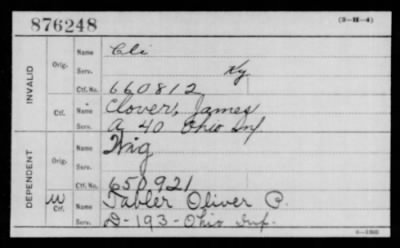 876248 (3-H-4)
INVALID
Orig. Name Cli
Serv. Ky
Ctf. No. 660812
Ctf. Name Clover, James
Serv. A 40 Ohio Inf
DEPENDENT
Orig. Name Wig
Serv.
Ctf. No. 650,921
M Ctf. Name Tabler Oliver P.
Serv. D-193-Ohio Inf.